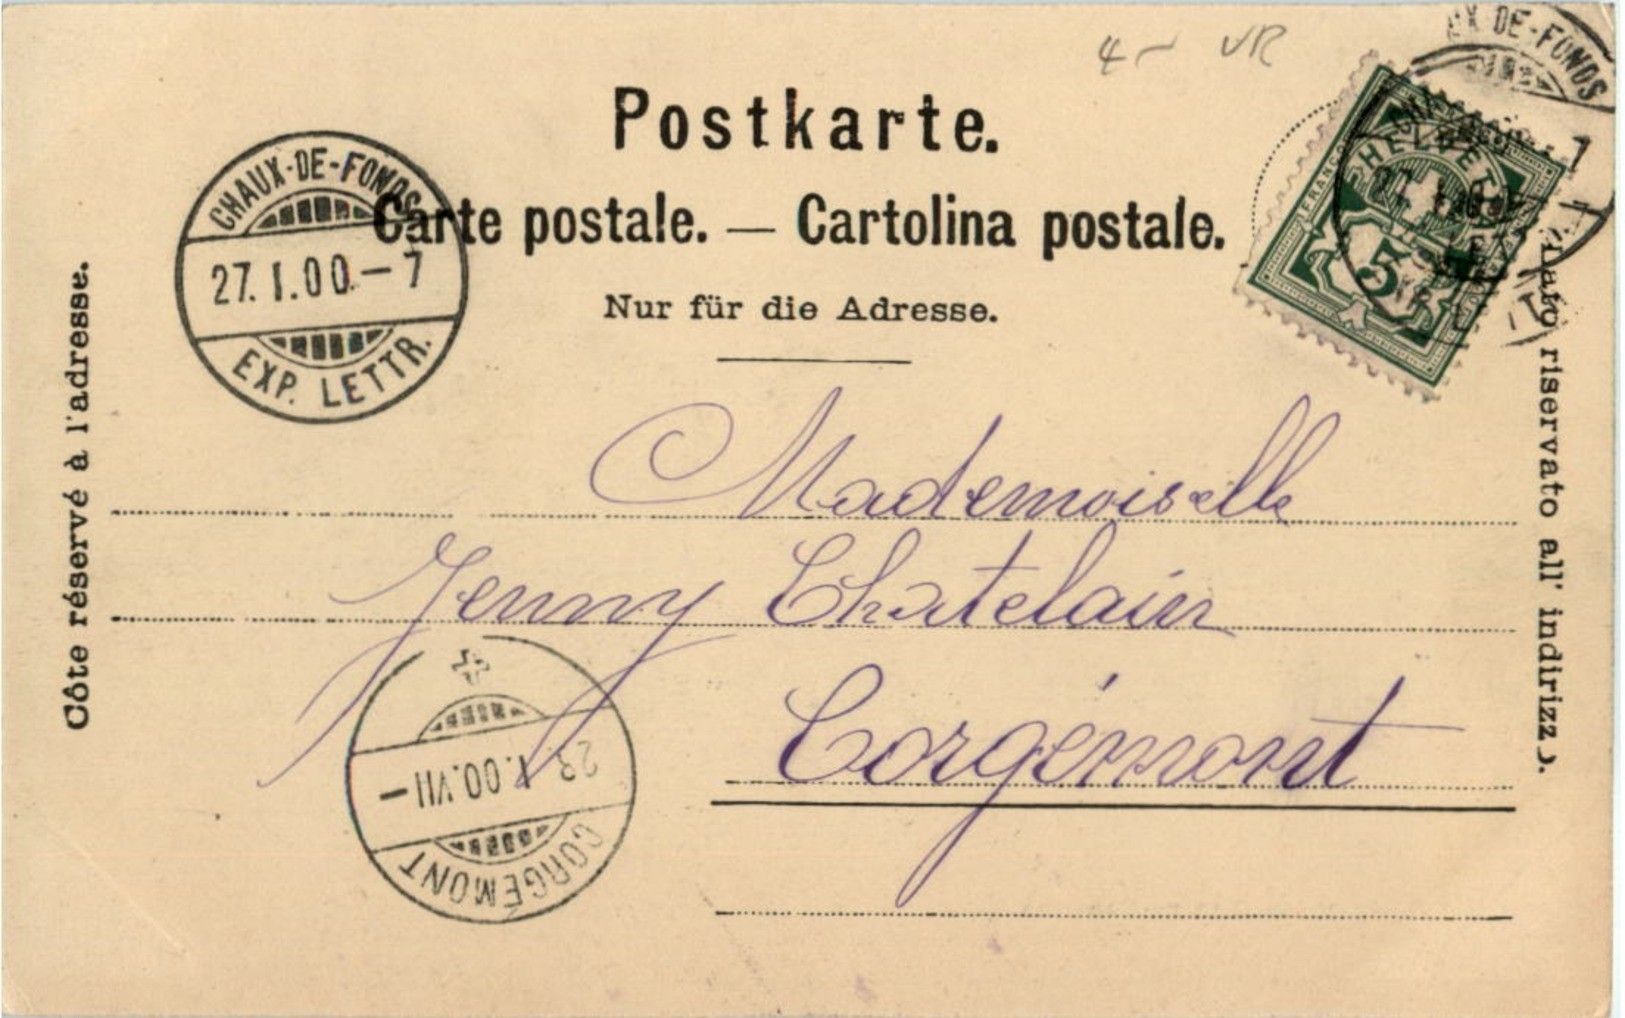 4 VR
Postkarte.
Carte postale. — Cartolina postale.
Nur für die Adresse.
Côte réservé à l'adresse.
Lato riservato all' indirizzo.
CHAUX-DE-FONDS
27. I. 00. — 7
EXP. LETTR.
X DE-FONDS
HELVETIA
FRANCO
5
Mademoiselle
Jenny Chatelain
Corgémont
I.00.VII —
CORGÉMONT